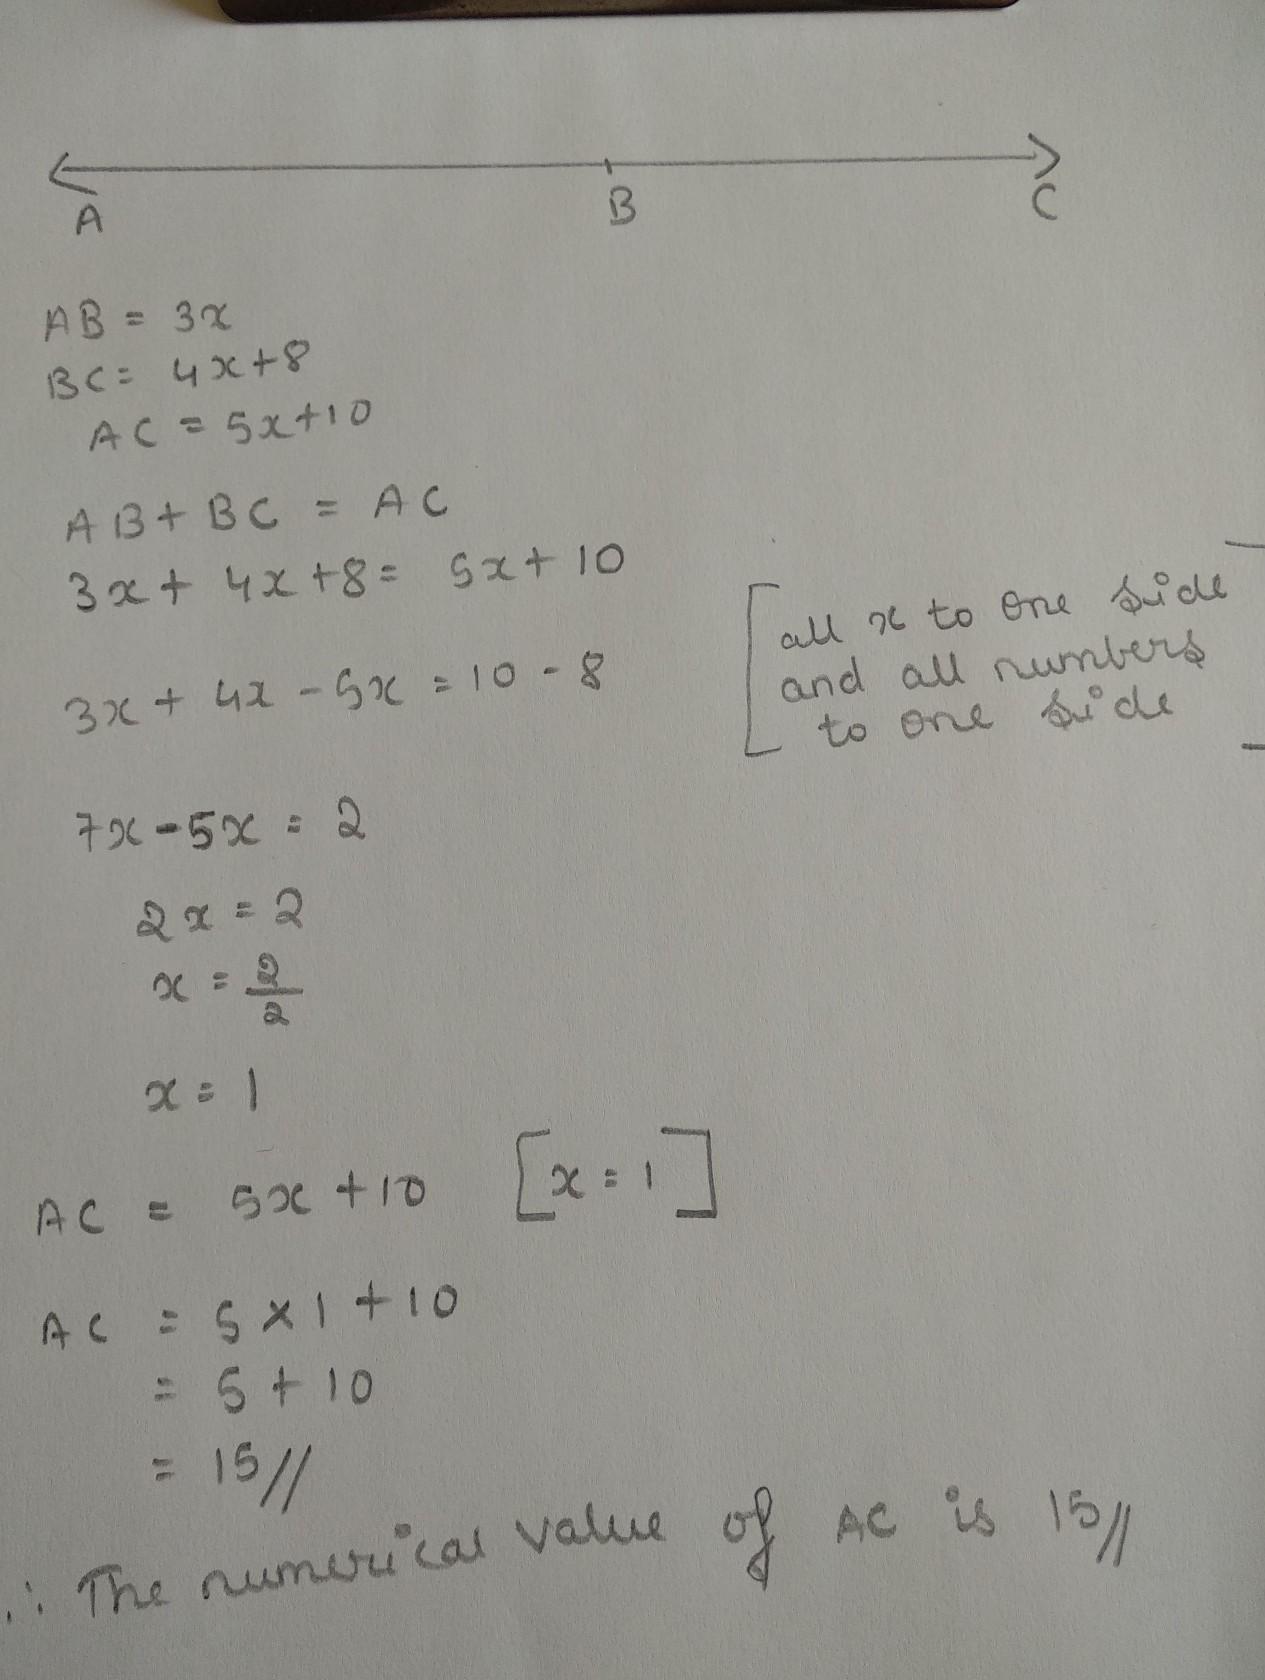 A B C
AB = 3x
BC = 4x+8
AC = 5x+10
AB + BC = AC
3x + 4x +8 = 5x + 10
3x + 4x - 5x = 10 - 8
[all x to one side
and all numbers
to one side]
7x - 5x = 2
2x = 2
x = 2/2
x = 1
AC = 5x + 10 [x = 1]
AC = 5 x 1 + 10
= 5 + 10
= 15//
∴ The numerical value of AC is 15//